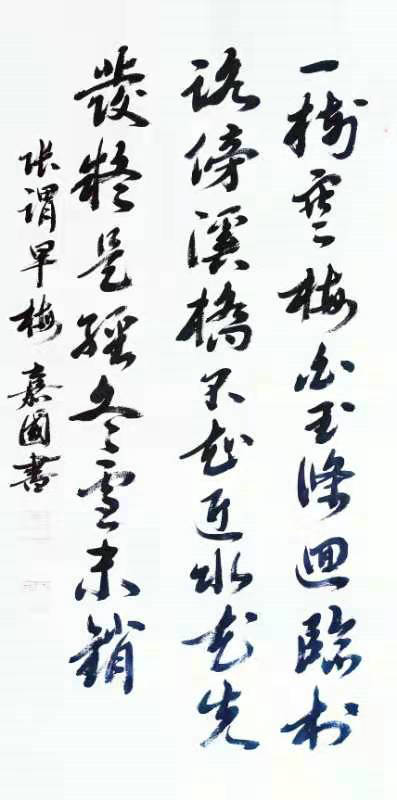 一樹寒梅白玉條迴臨村
路傍溪橋不知近水花先
發疑是經冬雪未銷
張謂早梅 嘉國書